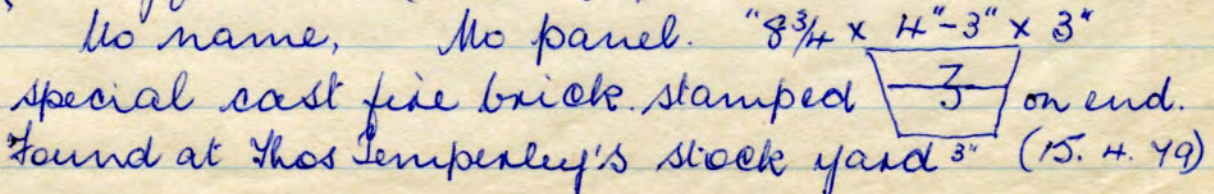 No name, No panel. "8¾ x 4"-3" x 3"
special cast fire brick. stamped 3 on end.
Found at Thos Temperley's stock yard 3" (15. 4. 79)